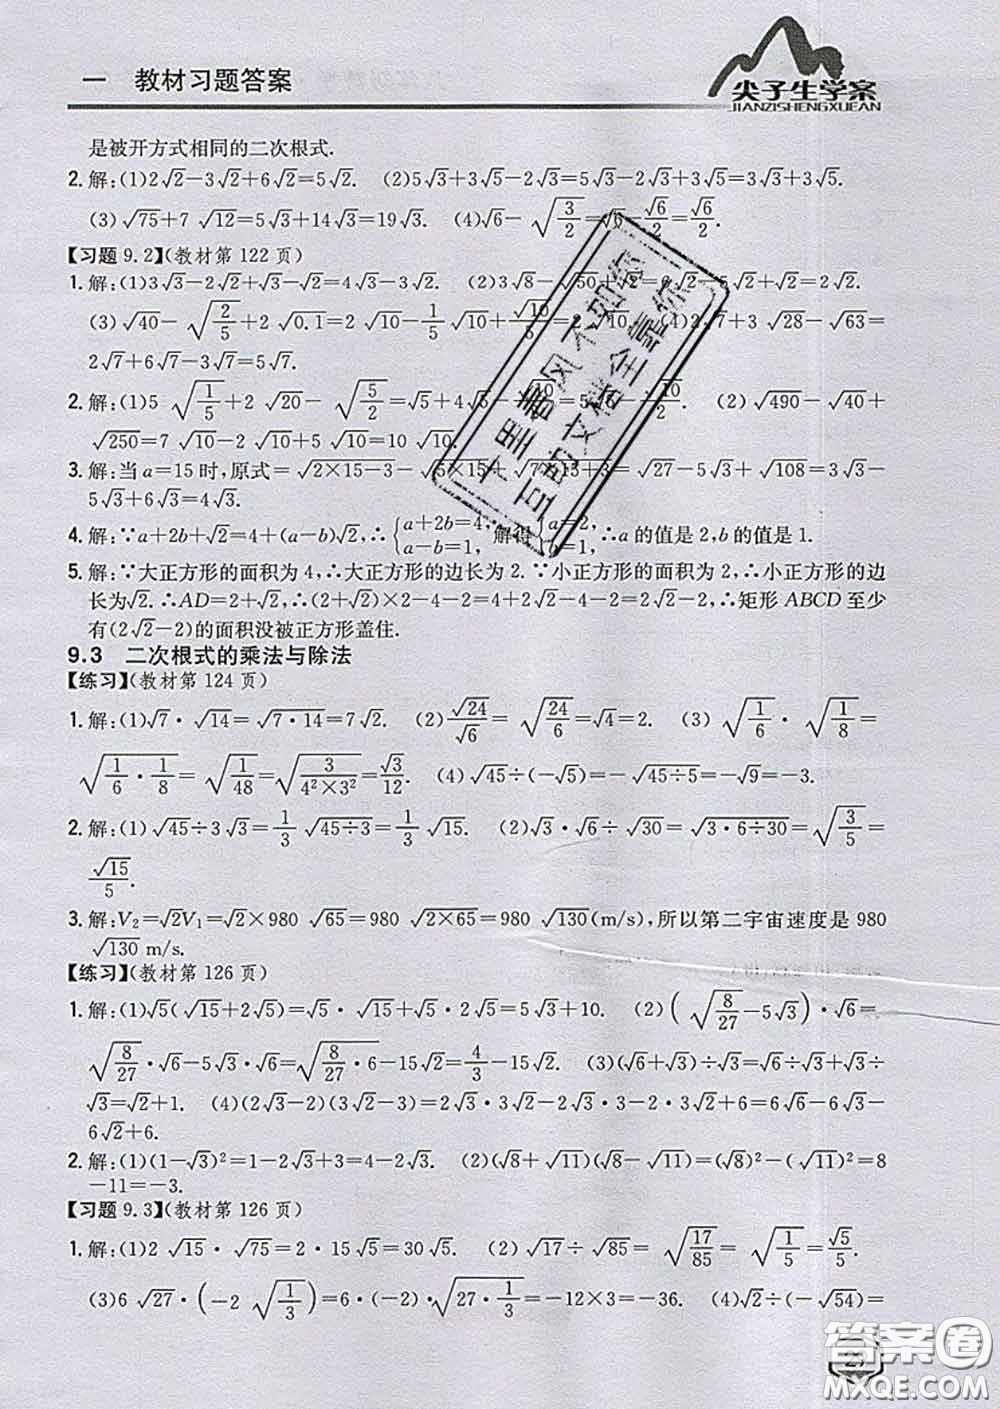 一 教材习题答案
尖子生学案
JIANZISHENGXUEAN
是被开方式相同的二次根式.
2. 解:(1)2√2-3√2+6√2=5√2. (2)5√3+3√5-2√3=5√3-2√3+3√5=3√3+3√5.
(3)√75+7√12=5√3+14√3=19√3. (4)√6-√(3/2)=√6-√6/2=√6/2.
【习题 9.2】(教材第 122 页)
1. 解:(1)3√3-2√2+√3-√2=4√3-3√2. (2)3√8-√50+√2=6√2-5√2+√2=2√2.
(3)√40-√(2/5)+2√0.1=2√10-1/5√10+√10/5=2√10. (4)2√7+3√28-√63=
2√7+6√7-3√7=5√7.
2. 解:(1)5√(1/5)+2√20-√(5/2)=√5+4√5-√10/2=5√5-√10/2. (2)√490-√40+
√250=7√10-2√10+5√10=10√10.
3. 解:当 a=15 时,原式=√(2×15-3)-√(5×15)+√(7×15+3)=√27-5√3+√108=3√3-
5√3+6√3=4√3.
4. 解:∵a+2b+√2=4+(a-b)√2,∴{a+2b=4, a-b=1, 解得{a=2, b=1, ∴a 的值是 2,b 的值是 1.
5. 解:∵大正方形的面积为 4,∴大正方形的边长为 2.∵小正方形的面积为 2,∴小正方形的边
长为√2.∴AD=2+√2,∴(2+√2)×2-4-2=4+2√2-4-2=2√2-2,∴矩形 ABCD 至少
有(2√2-2)的面积没被正方形盖住.
9.3 二次根式的乘法与除法
【练习】(教材第 124 页)
1. 解:(1)√7·√14=√(7·14)=7√2. (2)√24/√6=√(24/6)=√4=2. (3)√(1/6)·√(1/8)=
√(1/6·1/8)=√(1/48)=√(3/(4²×3²))=√3/12. (4)√45÷(-√5)=-√(45÷5)=-√9=-3.
2. 解:(1)√45÷3√3=1/3√(45÷3)=1/3√15. (2)√3·√6÷√30=√(3·6÷30)=√(3/5)=
√15/5.
3. 解:V₂=√2V₁=√2×980√65=980√(2×65)=980√130(m/s),所以第二宇宙速度是 980
√130 m/s.
【练习】(教材第 126 页)
1. 解:(1)√5(√15+2√5)=√5·√15+√5·2√5=5√3+10. (2)(√(8/27)-5√3)·√6=
√(8/27)·√6-5√3·√6=√(8/27·6)-15√2=4/3-15√2. (3)(√6+√3)÷√3=√6÷√3+√3÷
√3=√2+1. (4)(2√3-2)(3√2+3)=2√3·3√2+2√3·3-2·3√2-2×3=6√6+6√3-
6√2+6.
2. 解:(1)(1-√3)²=1-2√3+3=4-2√3. (2)(√8+√11)(√8-√11)=(√8)²-(√11)²=8
-11=-3.
【习题 9.3】(教材第 126 页)
1. 解:(1)2√15·√75=2·15√5=30√5. (2)√17÷√85=√(17/85)=√(1/5)=√5/5.
(3)6√27·(-2√(1/3))=6·(-2)·√(27·1/3)=-12×3=-36. (4)√2÷(-√54)=
千里春风不如你
互助文档全靠你
答案圈
MXQE.COM